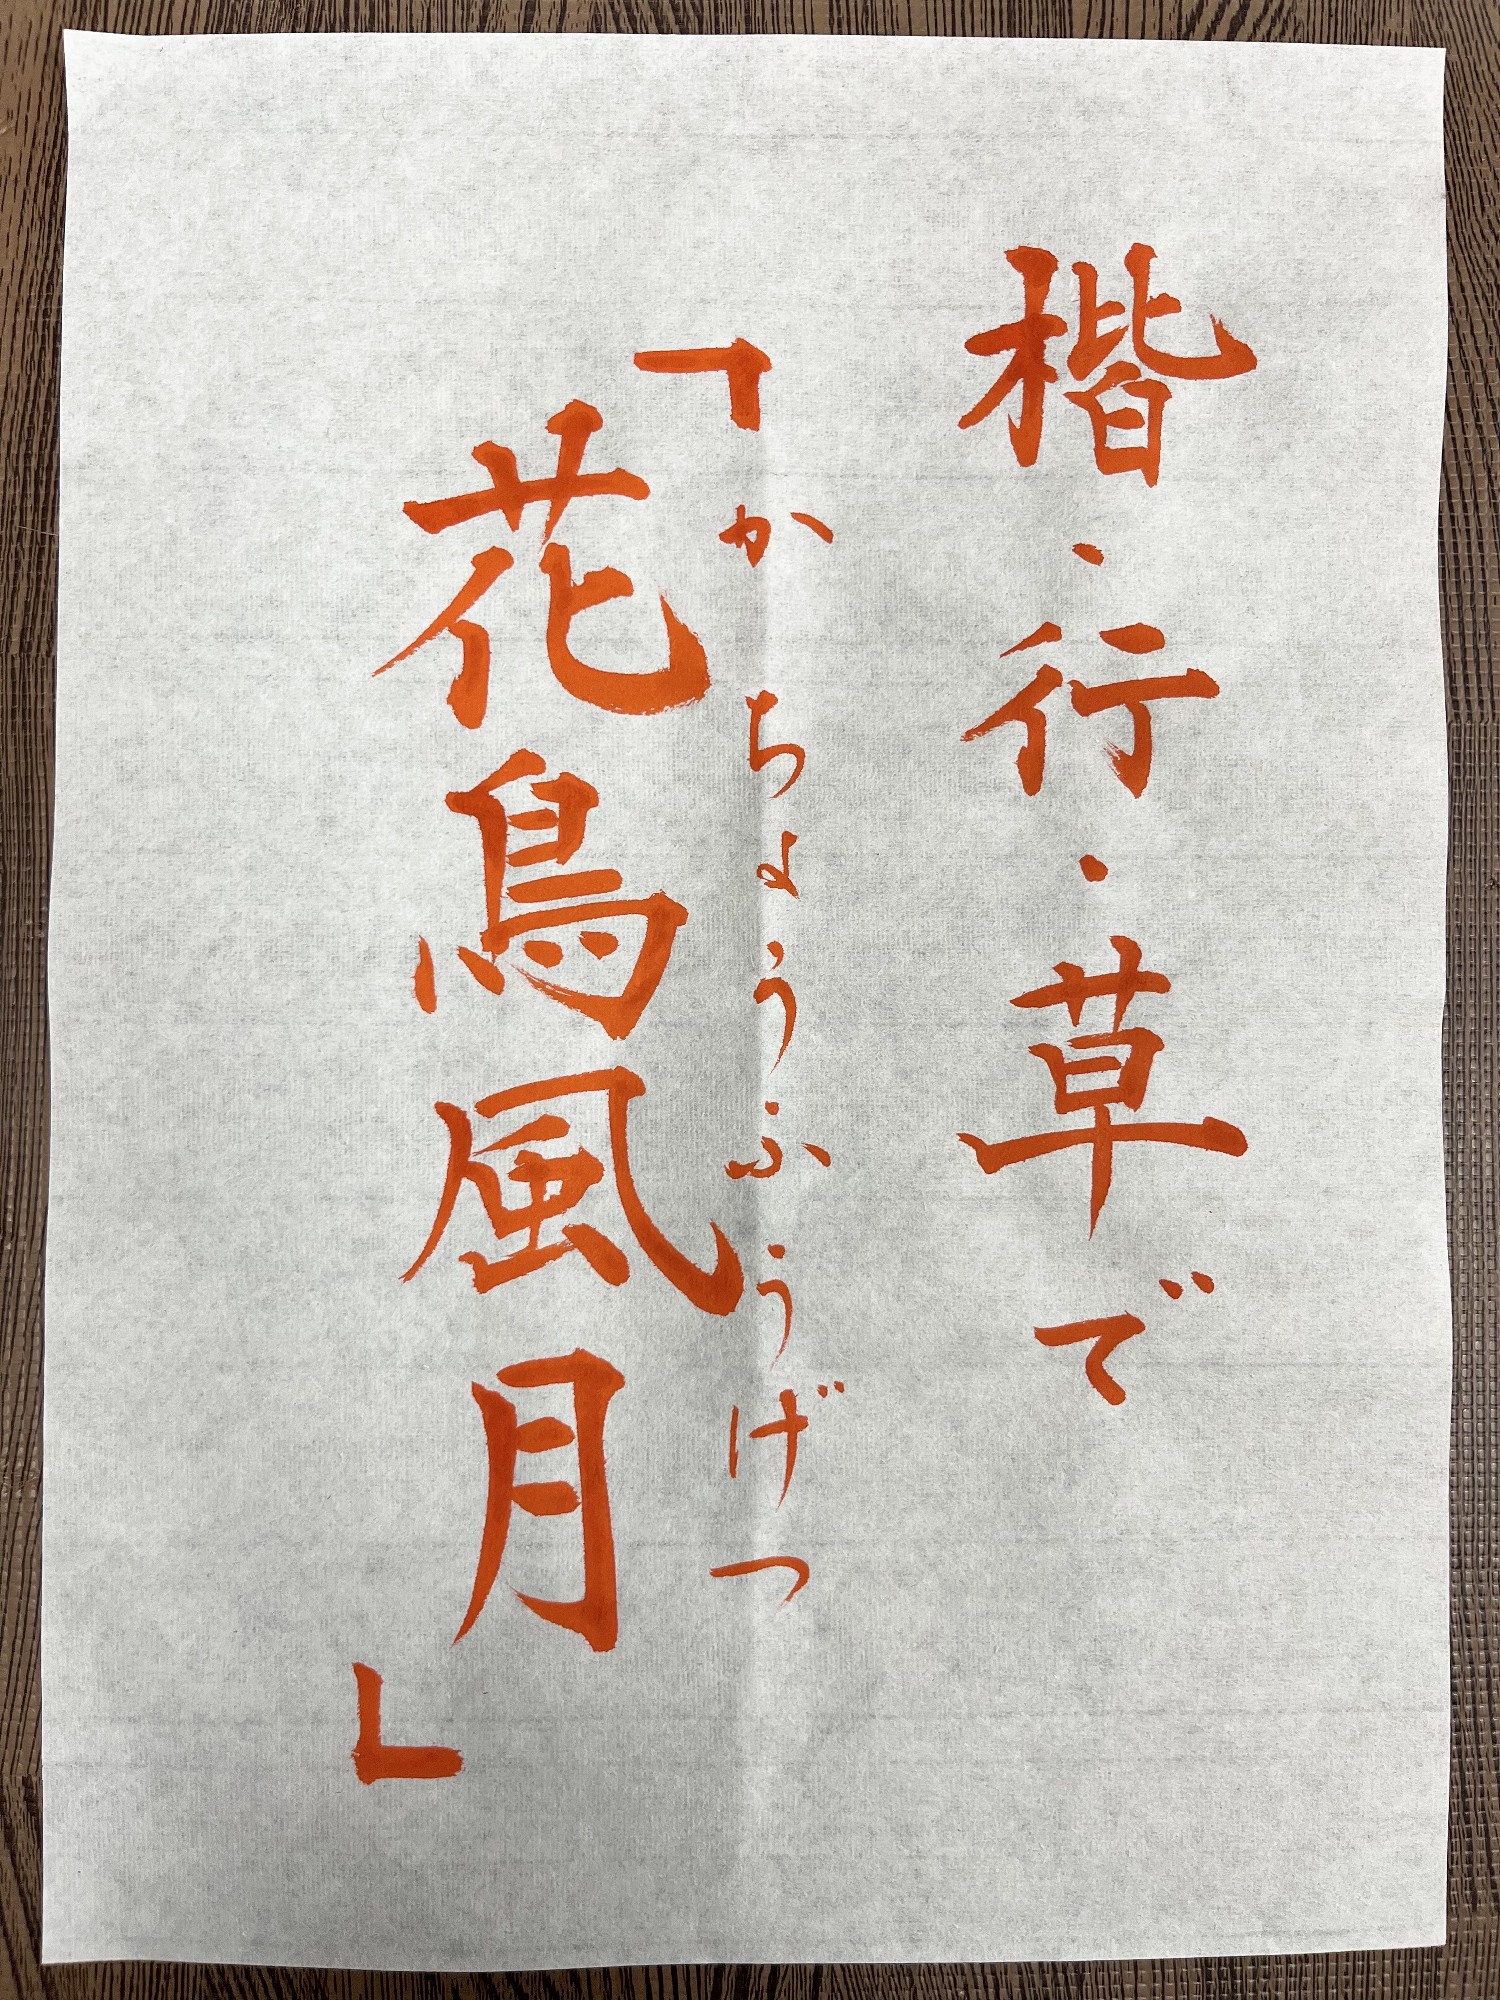 楷・行・草で
「花鳥風月」
かちょうふうげつ